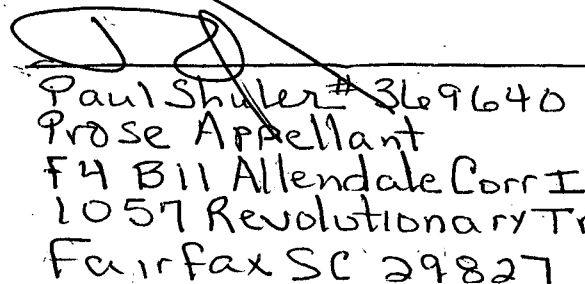 Paul Shuler # 369640
Prose Appellant
F4 B11 Allendale Corr I
1057 Revolutionary Tr
Fairfax SC 29827